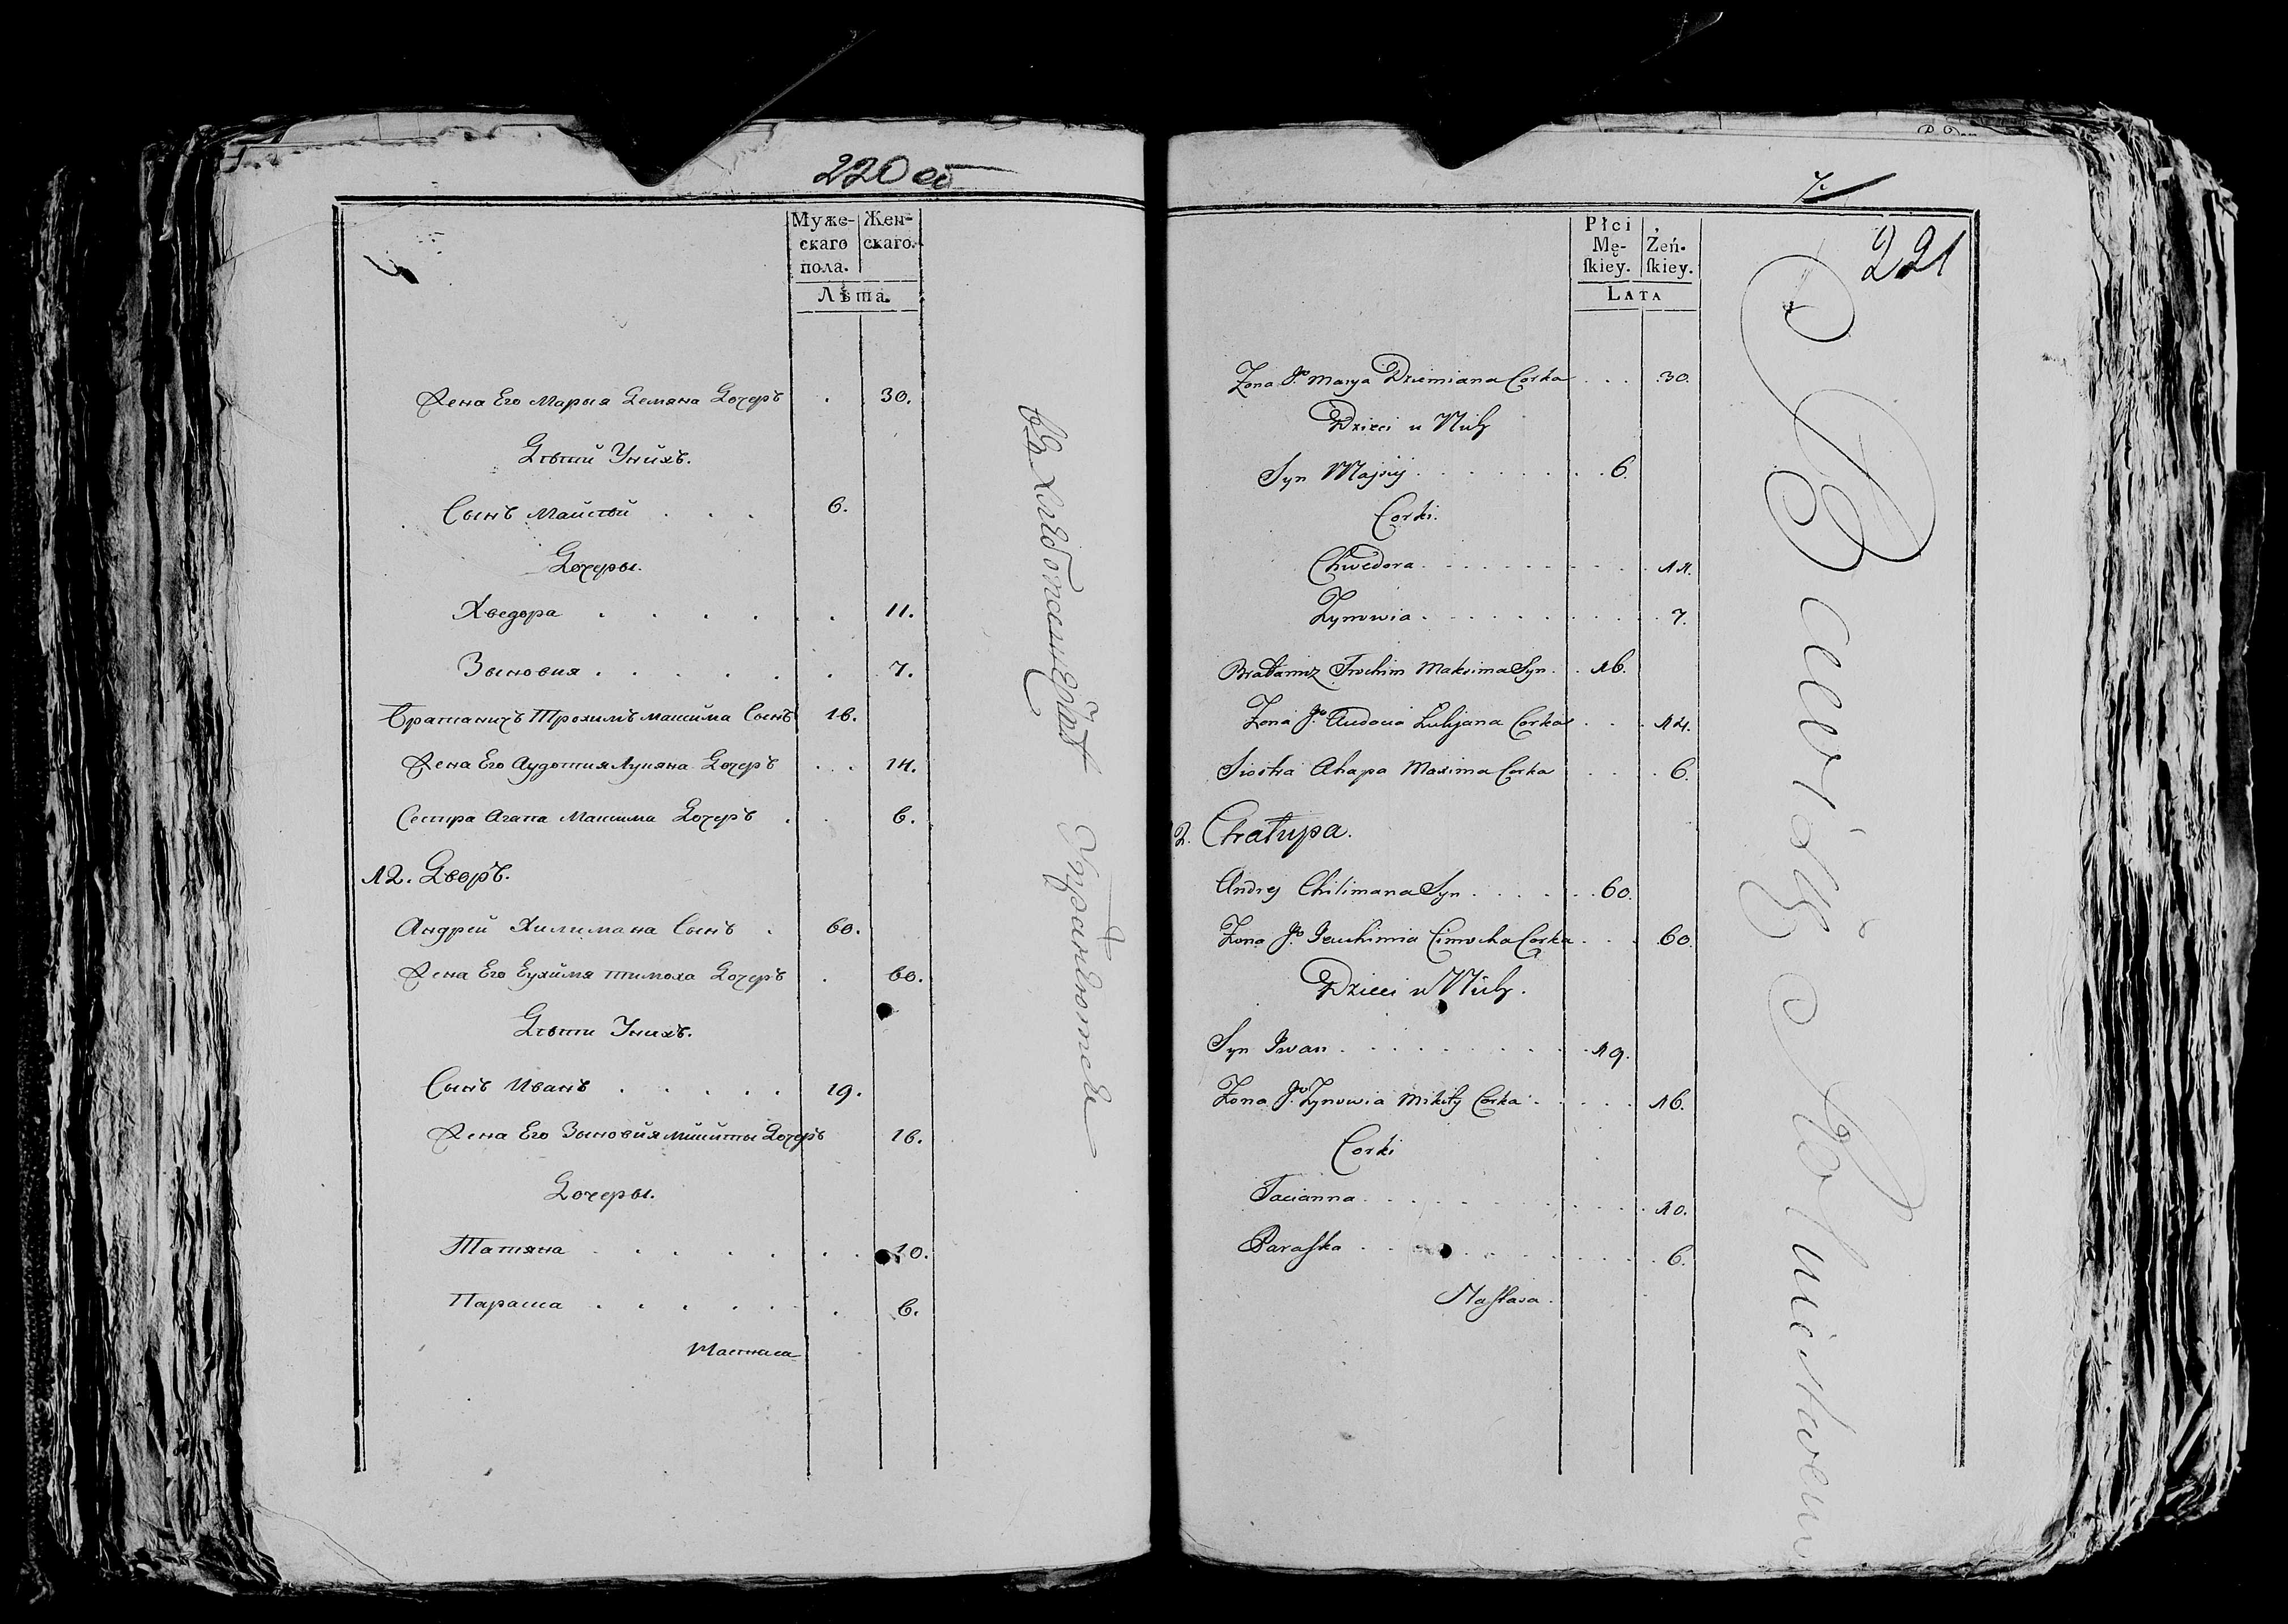 220 об
Муже- Жен-
скаго скаго.
пола.
Лѣта.
Жена Его Марыя Демяна Дочеръ . 30.
Дѣти Унихъ.
Сынъ Майсѣй . . . 6.
Дочеры.
Хведора . . . . . . 11.
Зыновия . . . . . . 7.
Братаничъ Трохимъ Максима Сынъ 16.
Жена Его Аудотия Лукяна Дочеръ . . 14.
Сестра Агапа Максима Дочеръ . . 6.
12. Дворъ.
Андрей Хилимана Сынъ . 60.
Жена Его Еухимя Тимоха Дочеръ . 60.
Дѣти Унихъ.
Сынъ Иванъ . . . . . 19.
Жена Его Зыновия Микиты Дочеръ 16.
Дочеры.
Татяна . . . . . . . 10.
Параска . . . . . . 6.
Настася
въ хлебопашествѣ Упражняются
7.
221
Płci
Mę- Żeń-
ſkiey. ſkiey.
LATA
Zona Jº Marya Dziemiana Corka . . . 30.
Dzieci u Nich
Syn Majsiej . . . . . . . . 6.
Corki.
Chwedora . . . . . . . . . . 11.
Zynowia . . . . . . . . . . 7.
Bratanicz Trochim Maksima Syn . . 16.
Zona Jº Audocia Lukjana Corka . . . 14.
Siostra Ahapa Maxima Corka . . . . 6.
2. Chałupa.
Andrej Chilimana Syn . . . . . . 60.
Zona Jº Jeuchimia Cimocha Corka . . . 60.
Dzieci u Nich.
Syn Jwan . . . . . . . . . 19.
Zona Jº Zynowia Mikity Corka . . . . . 16.
Corki
Tacianna . . . . . . . . . . . 10.
Paraſka . . . . . . . . . . . 6.
Naſtasa.